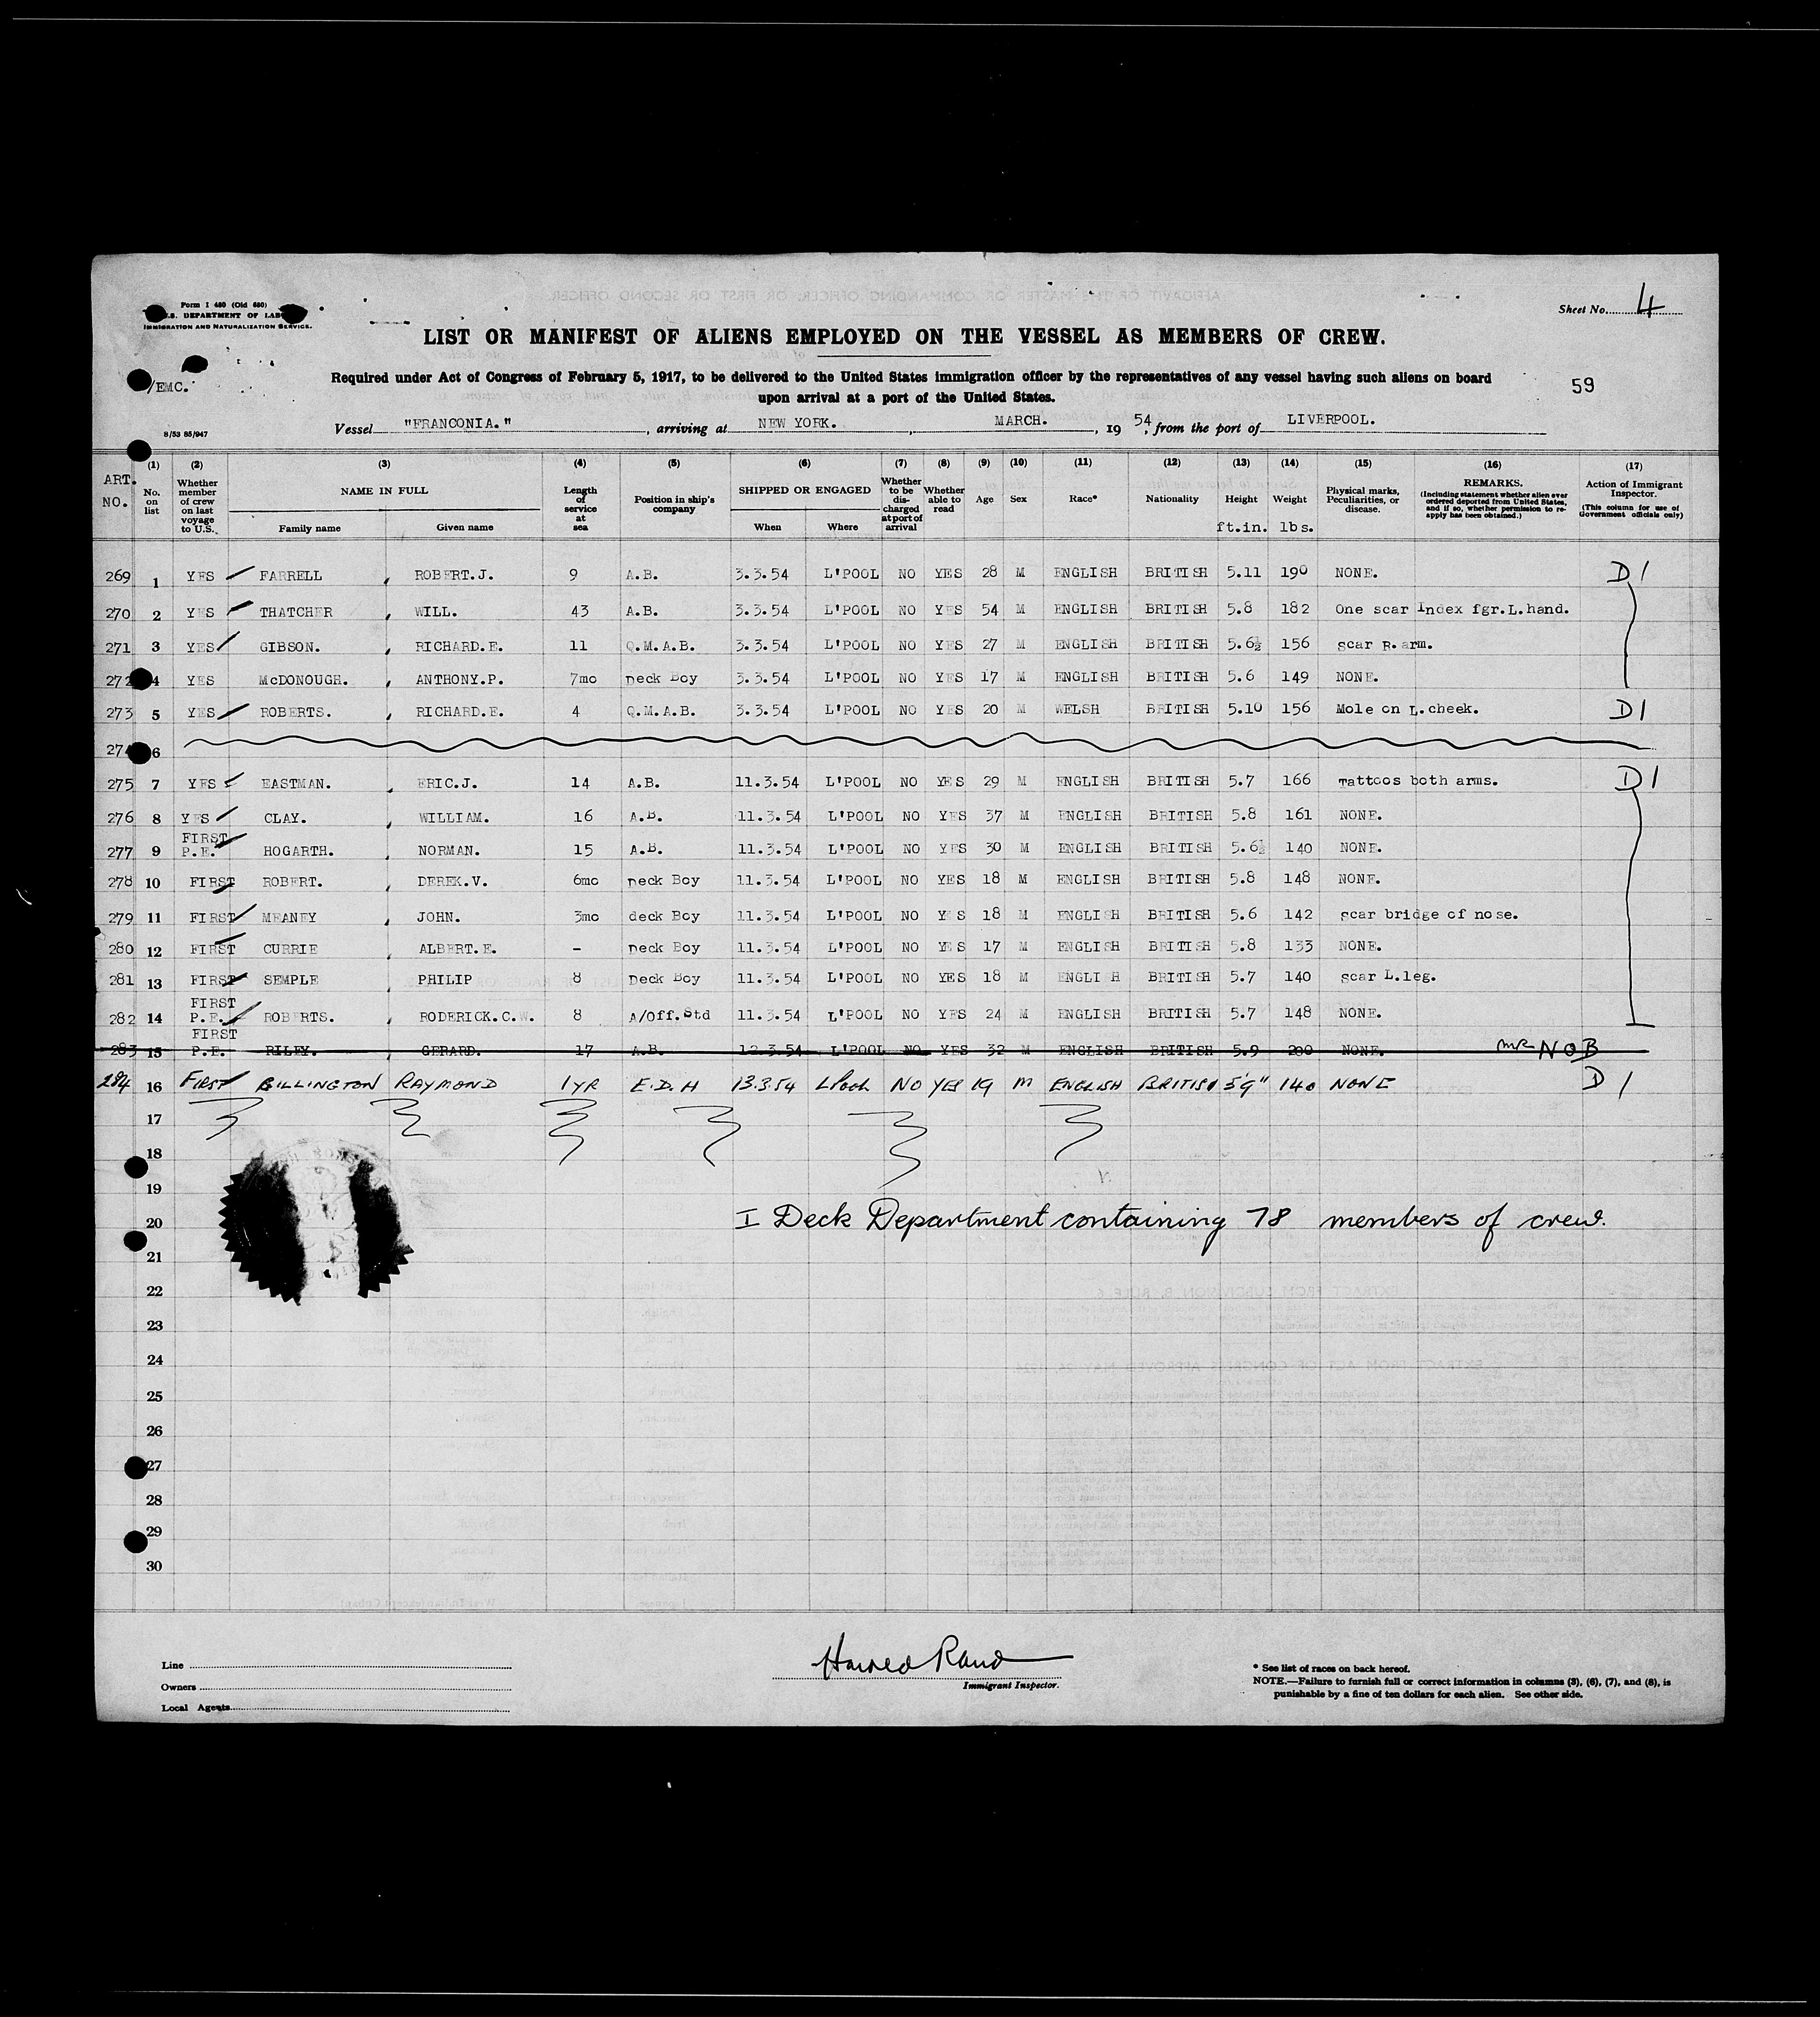 Form I 480 (Old 680)
U.S. DEPARTMENT OF LABOR
IMMIGRATION AND NATURALIZATION SERVICE.
Sheet No. 4
LIST OR MANIFEST OF ALIENS EMPLOYED ON THE VESSEL AS MEMBERS OF CREW.
/EMC.
Required under Act of Congress of February 5, 1917, to be delivered to the United States immigration officer by the representatives of any vessel having such aliens on board
upon arrival at a port of the United States.
59
8/53 85/947
Vessel "FRANCONIA." , arriving at NEW YORK. , MARCH. , 19 54, from the port of LIVERPOOL.
ART. NO.
(1) No. on list
(2) Whether member of crew on last voyage to U.S.
(3) NAME IN FULL
Family name Given name
(4) Length of service at sea
(5) Position in ship's company
(6) SHIPPED OR ENGAGED
When Where
(7) Whether to be discharged at port of arrival
(8) Whether able to read
(9) Age
(10) Sex
(11) Race*
(12) Nationality
(13) Height ft.in.
(14) Weight lbs.
(15) Physical marks, Peculiarities, or disease.
(16) REMARKS. (Including statement whether alien ever ordered deported from United States, and if so, whether permission to re-apply has been obtained.)
(17) Action of Immigrant Inspector. (This column for use of Government officials only)
269 1 YES FARRELL , ROBERT.J. 9 A.B. 3.3.54 L'POOL NO YES 28 M ENGLISH BRITISH 5.11 190 NONE. D1
270 2 YES THATCHER , WILL. 43 A.B. 3.3.54 L'POOL NO YES 54 M ENGLISH BRITISH 5.8 182 One scar Index fgr.L.hand.
271 3 YES GIBSON. , RICHARD.E. 11 Q.M.A.B. 3.3.54 L'POOL NO YES 27 M ENGLISH BRITISH 5.6½ 156 scar R.arm.
272 4 YES McDONOUGH. , ANTHONY.P. 7mo Deck Boy 3.3.54 L'POOL NO YES 17 M ENGLISH BRITISH 5.6 149 NONE.
273 5 YES ROBERTS. , RICHARD.E. 4 Q.M.A.B. 3.3.54 L'POOL NO YES 20 M WELSH BRITISH 5.10 156 Mole on L.cheek. D1
274 6
275 7 YES EASTMAN. , ERIC.J. 14 A.B. 11.3.54 L'POOL NO YES 29 M ENGLISH BRITISH 5.7 166 Tattoos both arms. D1
276 8 YES CLAY. , WILLIAM. 16 A.B. 11.3.54 L'POOL NO YES 37 M ENGLISH BRITISH 5.8 161 NONE.
277 9 FIRST P.E. HOGARTH. , NORMAN. 15 A.B. 11.3.54 L'POOL NO YES 30 M ENGLISH BRITISH 5.6½ 140 NONE.
278 10 FIRST ROBERT. , DEREK.V. 6mo Deck Boy 11.3.54 L'POOL NO YES 18 M ENGLISH BRITISH 5.8 148 NONE.
279 11 FIRST MEANEY , JOHN. 3mo deck Boy 11.3.54 L'POOL NO YES 18 M ENGLISH BRITISH 5.6 142 scar bridge of nose.
280 12 FIRST CURRIE , ALBERT.E. - Deck Boy 11.3.54 L'POOL NO YES 17 M ENGLISH BRITISH 5.8 133 NONE.
281 13 FIRST SEMPLE , PHILIP 8 Deck Boy 11.3.54 L'POOL NO YES 18 M ENGLI H BRITISH 5.7 140 scar L.leg.
282 14 FIRST P.E. ROBERTS. , RODERICK.C.W. 8 A/Off.Std 11.3.54 L'POOL NO YES 24 M ENGLISH BRITISH 5.7 148 NONE.
283 15 FIRST P.E. RILEY. , GERARD. 17 A.B. 12.3.54 L'POOL NO YES 32 M ENGLISH BRITISH 5.9 200 NONE. NOB
284 16 FIRST BILLINGTON RAYMOND 1YR E.D.H 13.3.54 L'POOL NO YES 19 M ENGLISH BRITISH 5'9" 140 NONE D1
17
18
19
20 I Deck Department containing 78 members of crew.
21
22
23
24
25
26
27
28
29
30
Harold Rand
Immigrant Inspector.
Line
Owners
Local Agents
* See list of races on back hereof.
NOTE.—Failure to furnish full or correct information in columns (3), (6), (7), and (8), is
punishable by a fine of ten dollars for each alien. See other side.